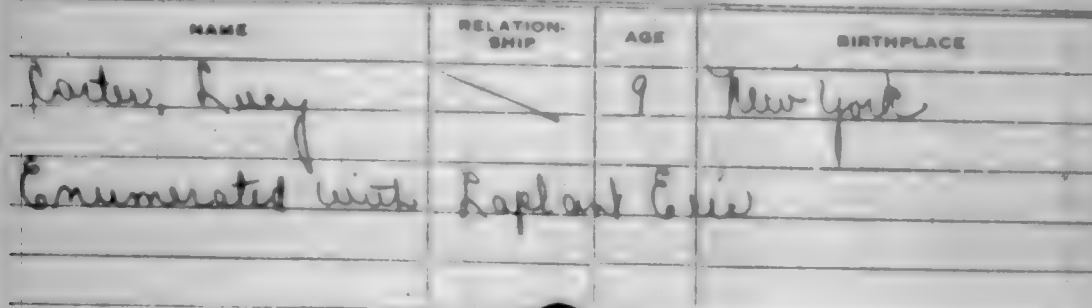 NAME RELATION-SHIP AGE BIRTHPLACE
Carter, Lucy 9 New York
Enumerated with Laplant